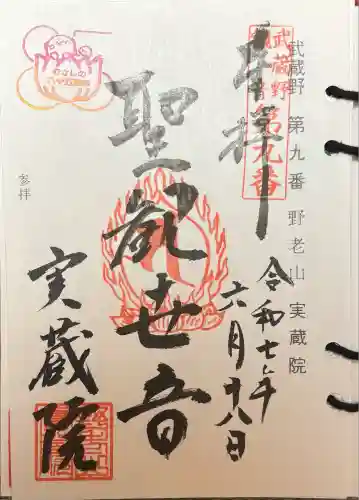 武蔵野 第九番 野老山 実蔵院
武蔵野観音
第九番
奉拝
令和七年
六月十八日
聖観世音
実蔵院
参拝